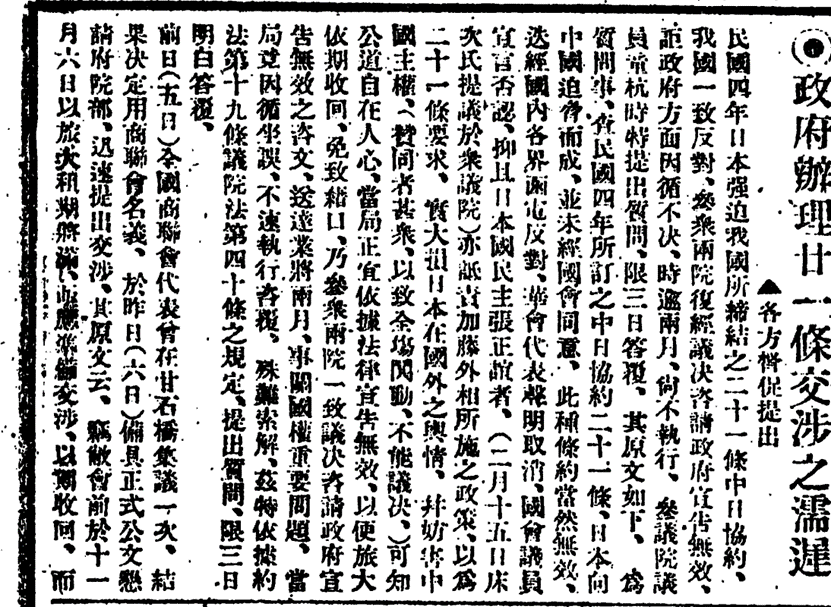 政府辦理廿一條交涉之濡遲
▲各方督促提出
民國四年日本强迫我國所締結之二十一條中日協約、
我國一致反對、參衆兩院復經議決咨請政府宣告無效、
詎政府方面因循不決、時逾兩月、尙不執行、參議院議
員童杭時特提出質問、限三日答覆、其原文如下、爲
質問事、查民國四年所訂之中日協約二十一條、日本向
中國迫脅而成、並未經國會同意、此種條約當然無效、
迭經國內各界函電反對、華會代表聲明取消、國會議員
宣言否認、抑且日本國民主張正誼者、（二月十五日床
次氏提議於衆議院）亦詆責加藤外相所施之政策、以爲
二十一條要求、實大損日本在國外之輿情、幷妨害中
國主權、（贊同者甚衆、以致全塲鬨動、不能議決、）可知
公道自在人心、當局正宜依據法律宣告無效、以便旅大
依期收回、免致藉口、乃參衆兩院一致議決咨請政府宣
告無效之咨文、送達業將兩月、事關國權重要問題、當
局竟因循坐誤、不速執行咨覆、殊難索解、茲特依據約
法第十九條議院法第四十條之規定、提出質問、限三日
明白答覆、
前日（五日）全國商聯會代表曾在甘石橋集議一次、結
果決定用商聯會名義、於昨日（六日）備具正式公文懇
請府院部、迅速提出交涉、其原文云、竊敝會前於十一
月六日以旅大租期將滿、亟應準備交涉、以期收回、而